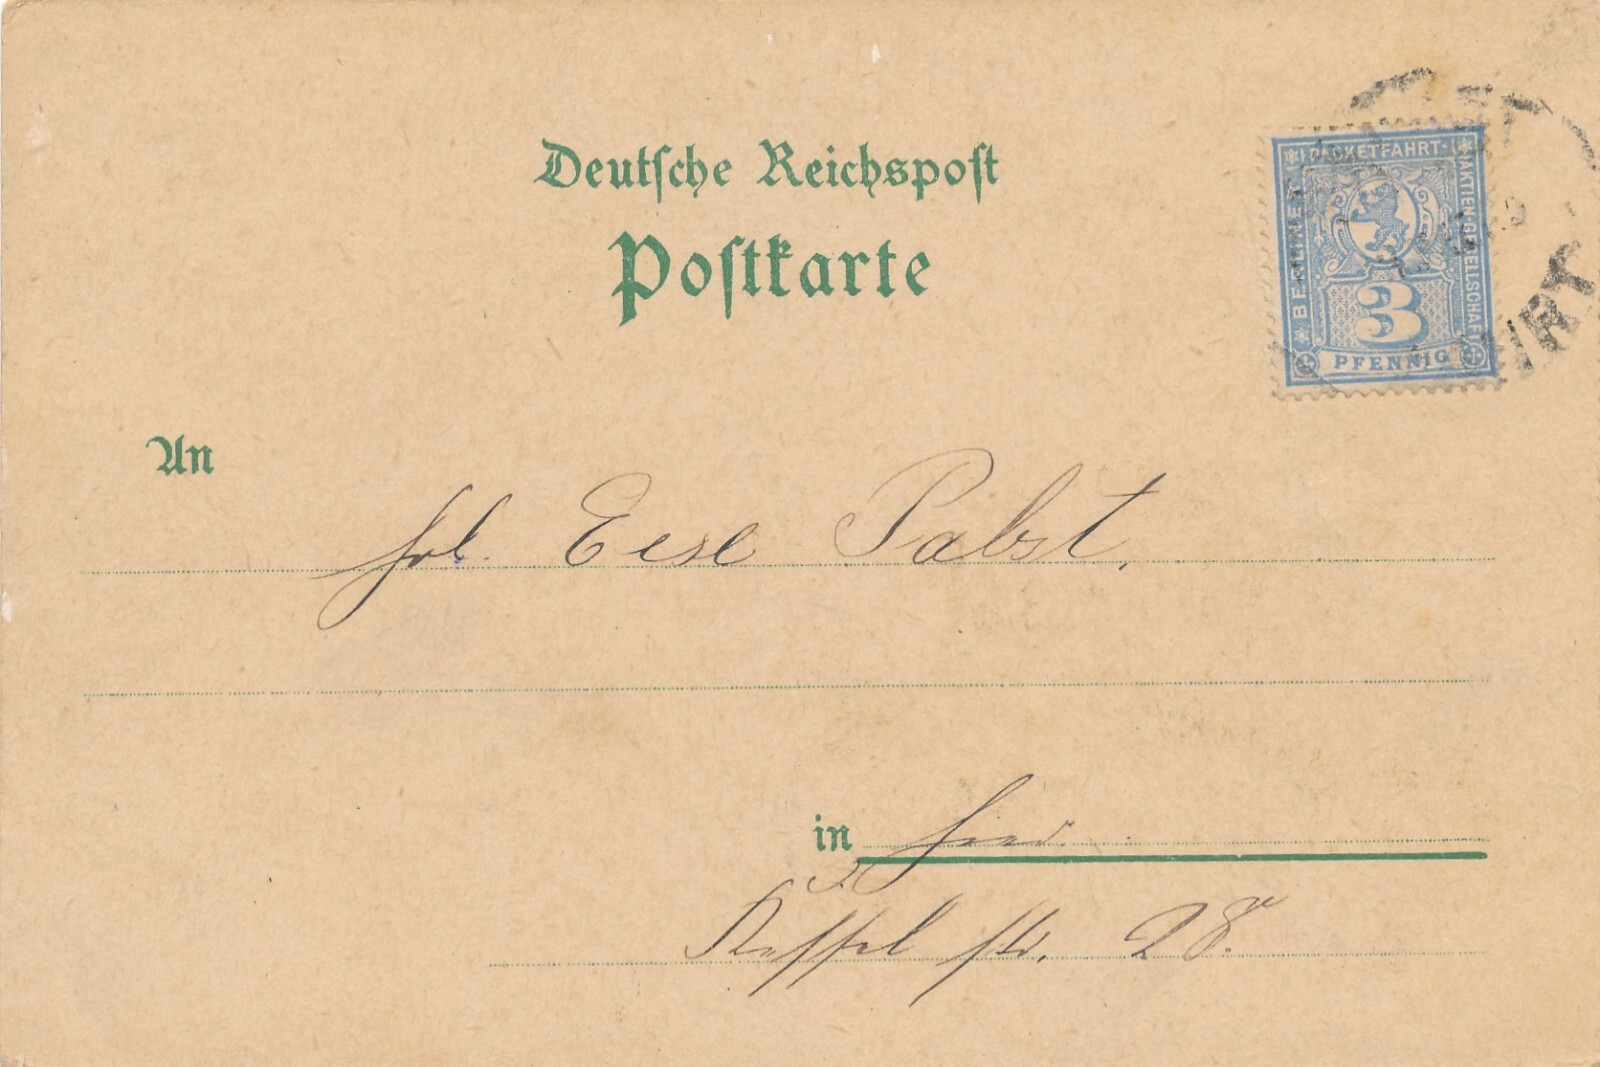 Deutsche Reichspost
Postkarte
BERLINER PACKETFAHRT-AKTIEN-GESELLSCHAFT
3
PFENNIG
An
Frl. Else Pabst.
in hier.
Kessel str. 28.